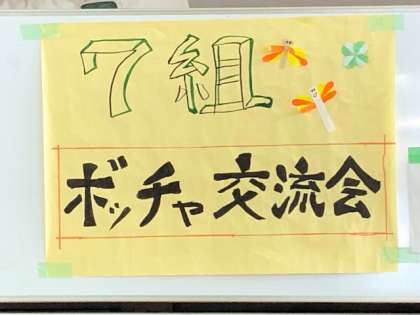 7組
ボッチャ交流会